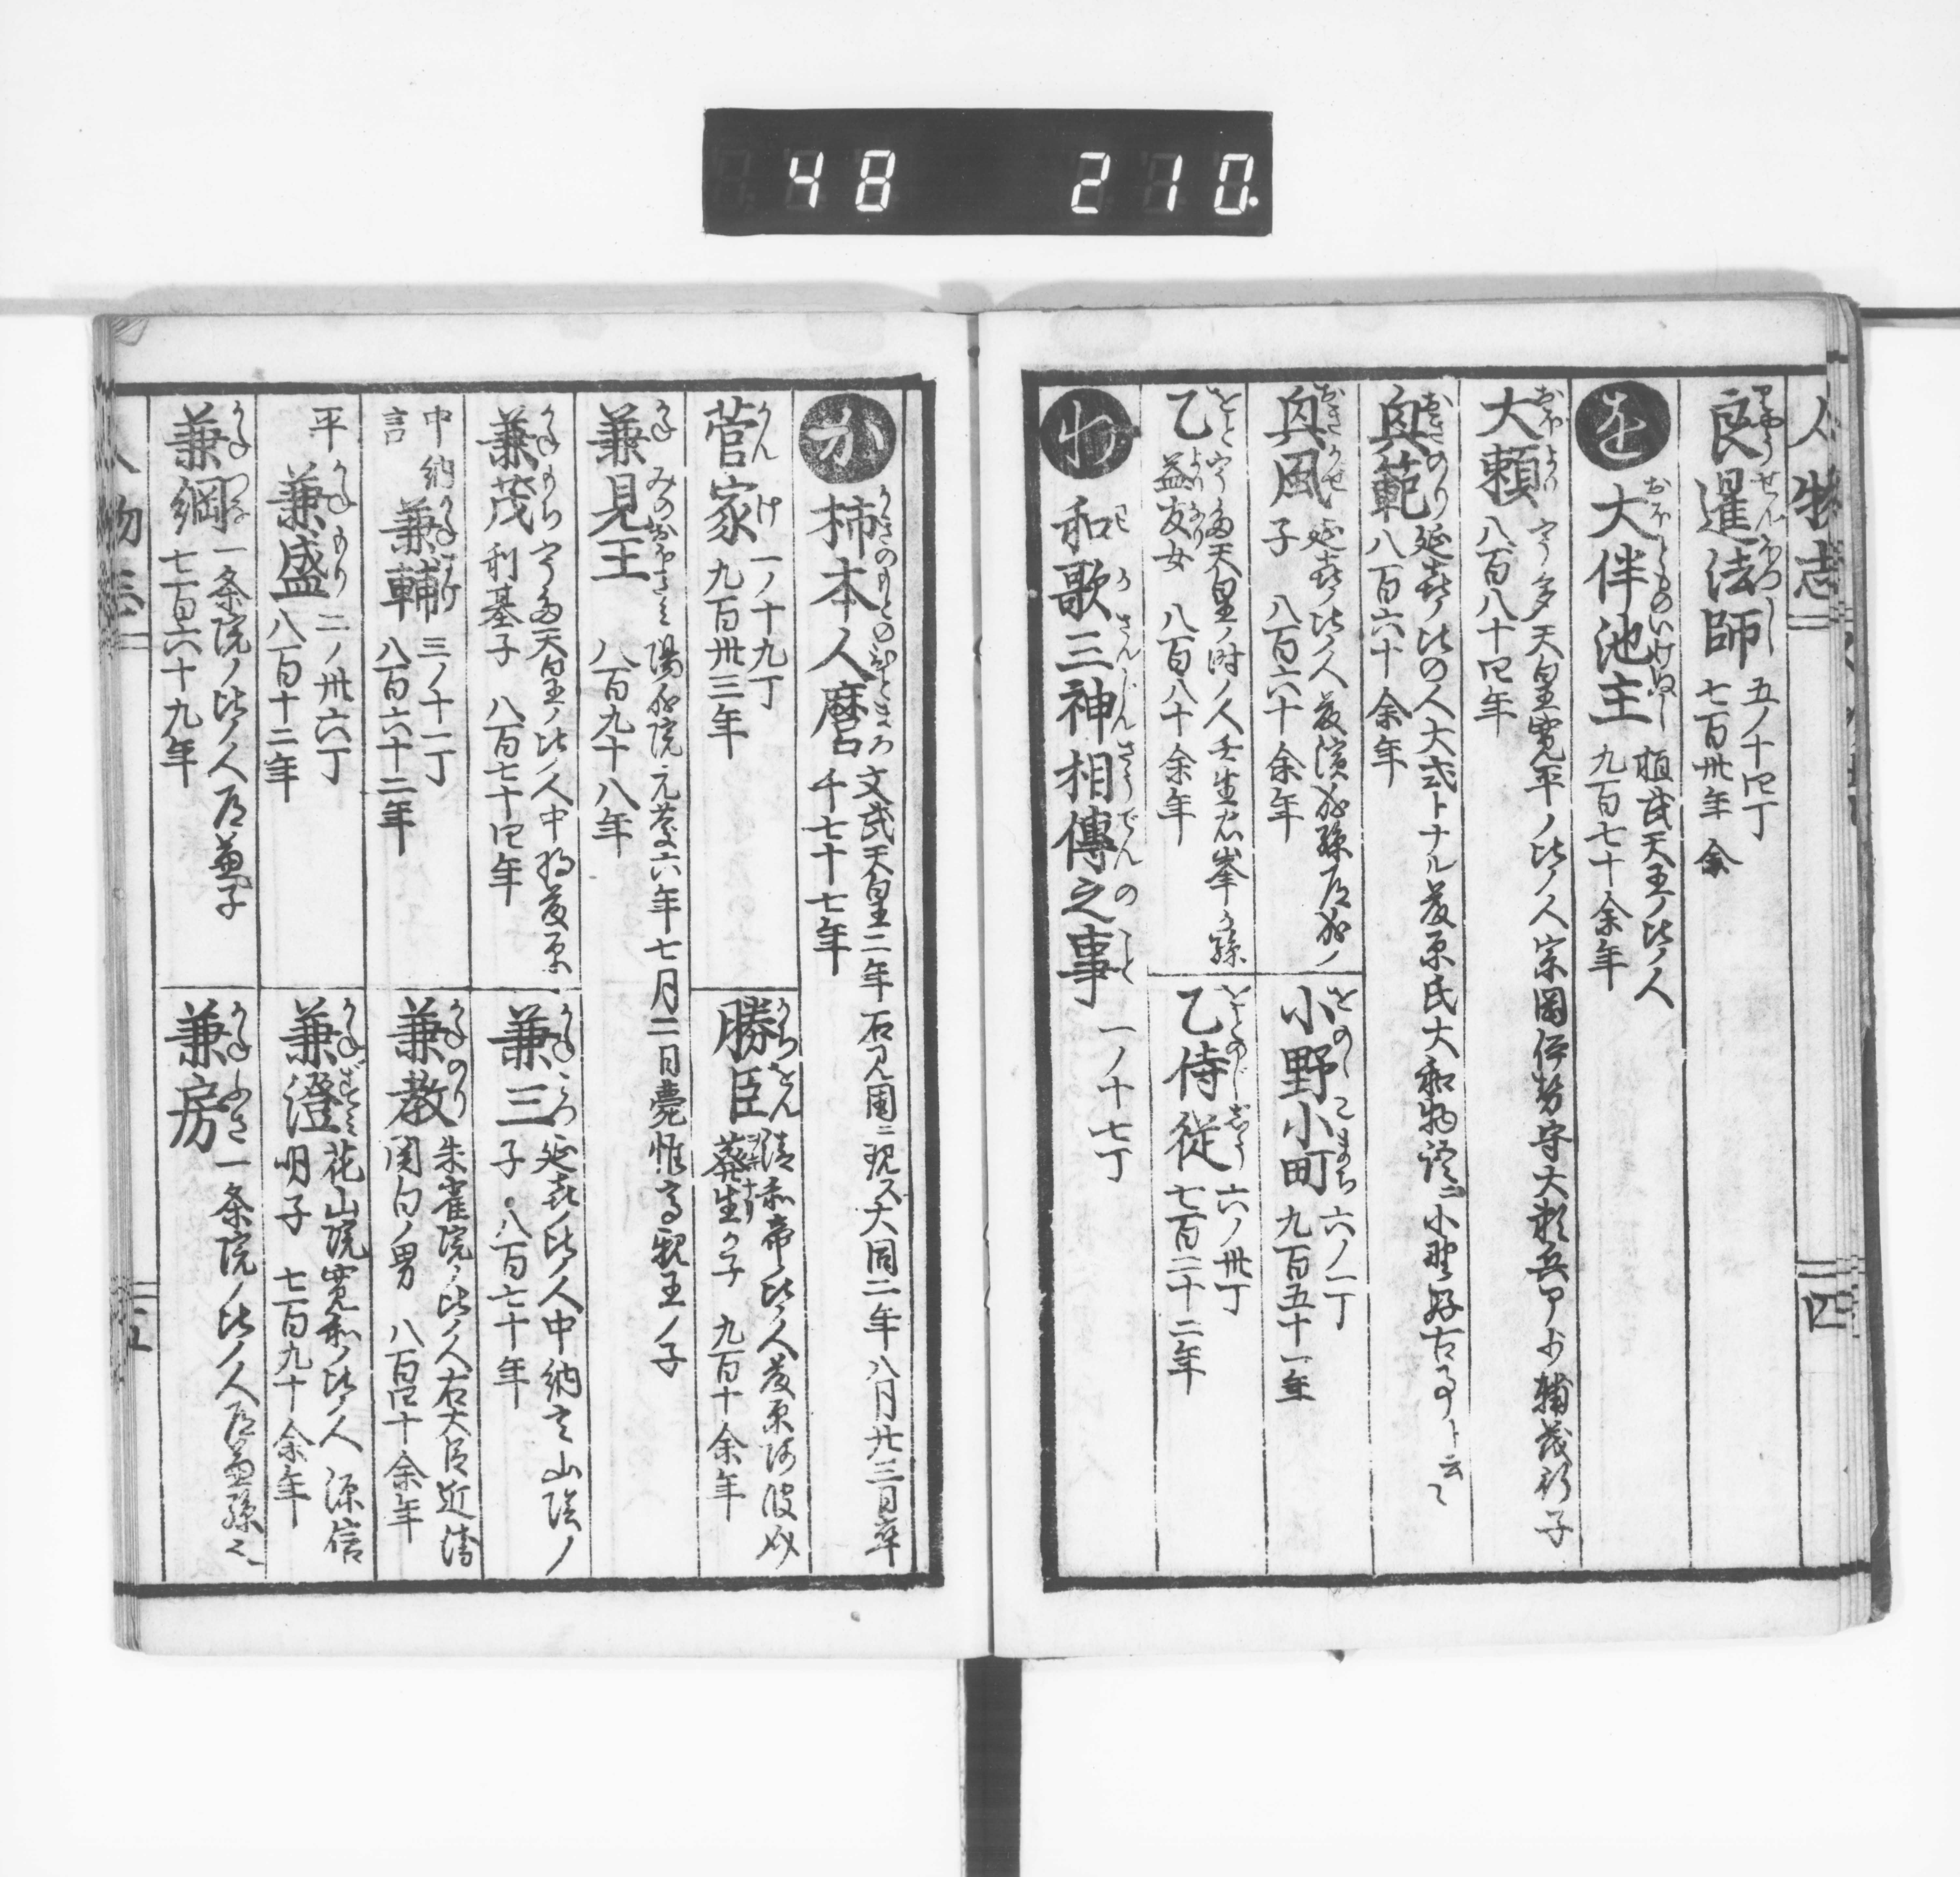 48 210.
人物志
四
良暹法師 五ノ十四丁
七百卅年余
を
大伴池主 桓武天王ノ比ノ人
九百七十余年
大頼 宇多天皇寛平ノ比ノ人宗岡伊勢守大
八百八十四年
興範 延喜ノ比の人大弐トナル藤原氏大和物語ニ小野好古なりト云々
八百六十余年
興風 延喜ノ比ノ人藤濱成孫道成ノ
子 八百六十余年
小野小町 六ノ一丁
九百五十一年
乙 宇多天皇ノ時ノ人壬生忠岑ガ孫
益友女 八百八十余年
乙侍従 六ノ卅丁
七百二十二年
わ
和歌三神相傳之事 一ノ十七丁
か
柿本人麿 文武天皇二年石見国ニ現ス大同二年八月廿三日卒
千七十七年
菅家 一ノ十九丁
九百卅三年
勝臣 清和帝ノ比ノ人藤原阿波
葵生ガ子 九百十余年
兼見王 陽成院元慶六年七月二日薨惟高親王ノ子
八百九十八年
兼茂 宇多天皇ノ比ノ人中将藤原
利基子 八百七十四年
兼三 延喜ノ比ノ人中納言山蔭ノ
子 八百七十年
中納言
兼輔 三ノ十一丁
八百六十二年
兼教 朱雀院ノ比ノ人右大臣近清
関白ノ男 八百四十余年
平
兼盛 二ノ卅六丁
八百十二年
兼澄 花山院寛和ノ比ノ人源信
明子 七百九十余年
兼綱 一条院ノ比ノ人道兼子
七百六十九年
兼房 一条院ノ比ノ人道兼孫々
人物志
五